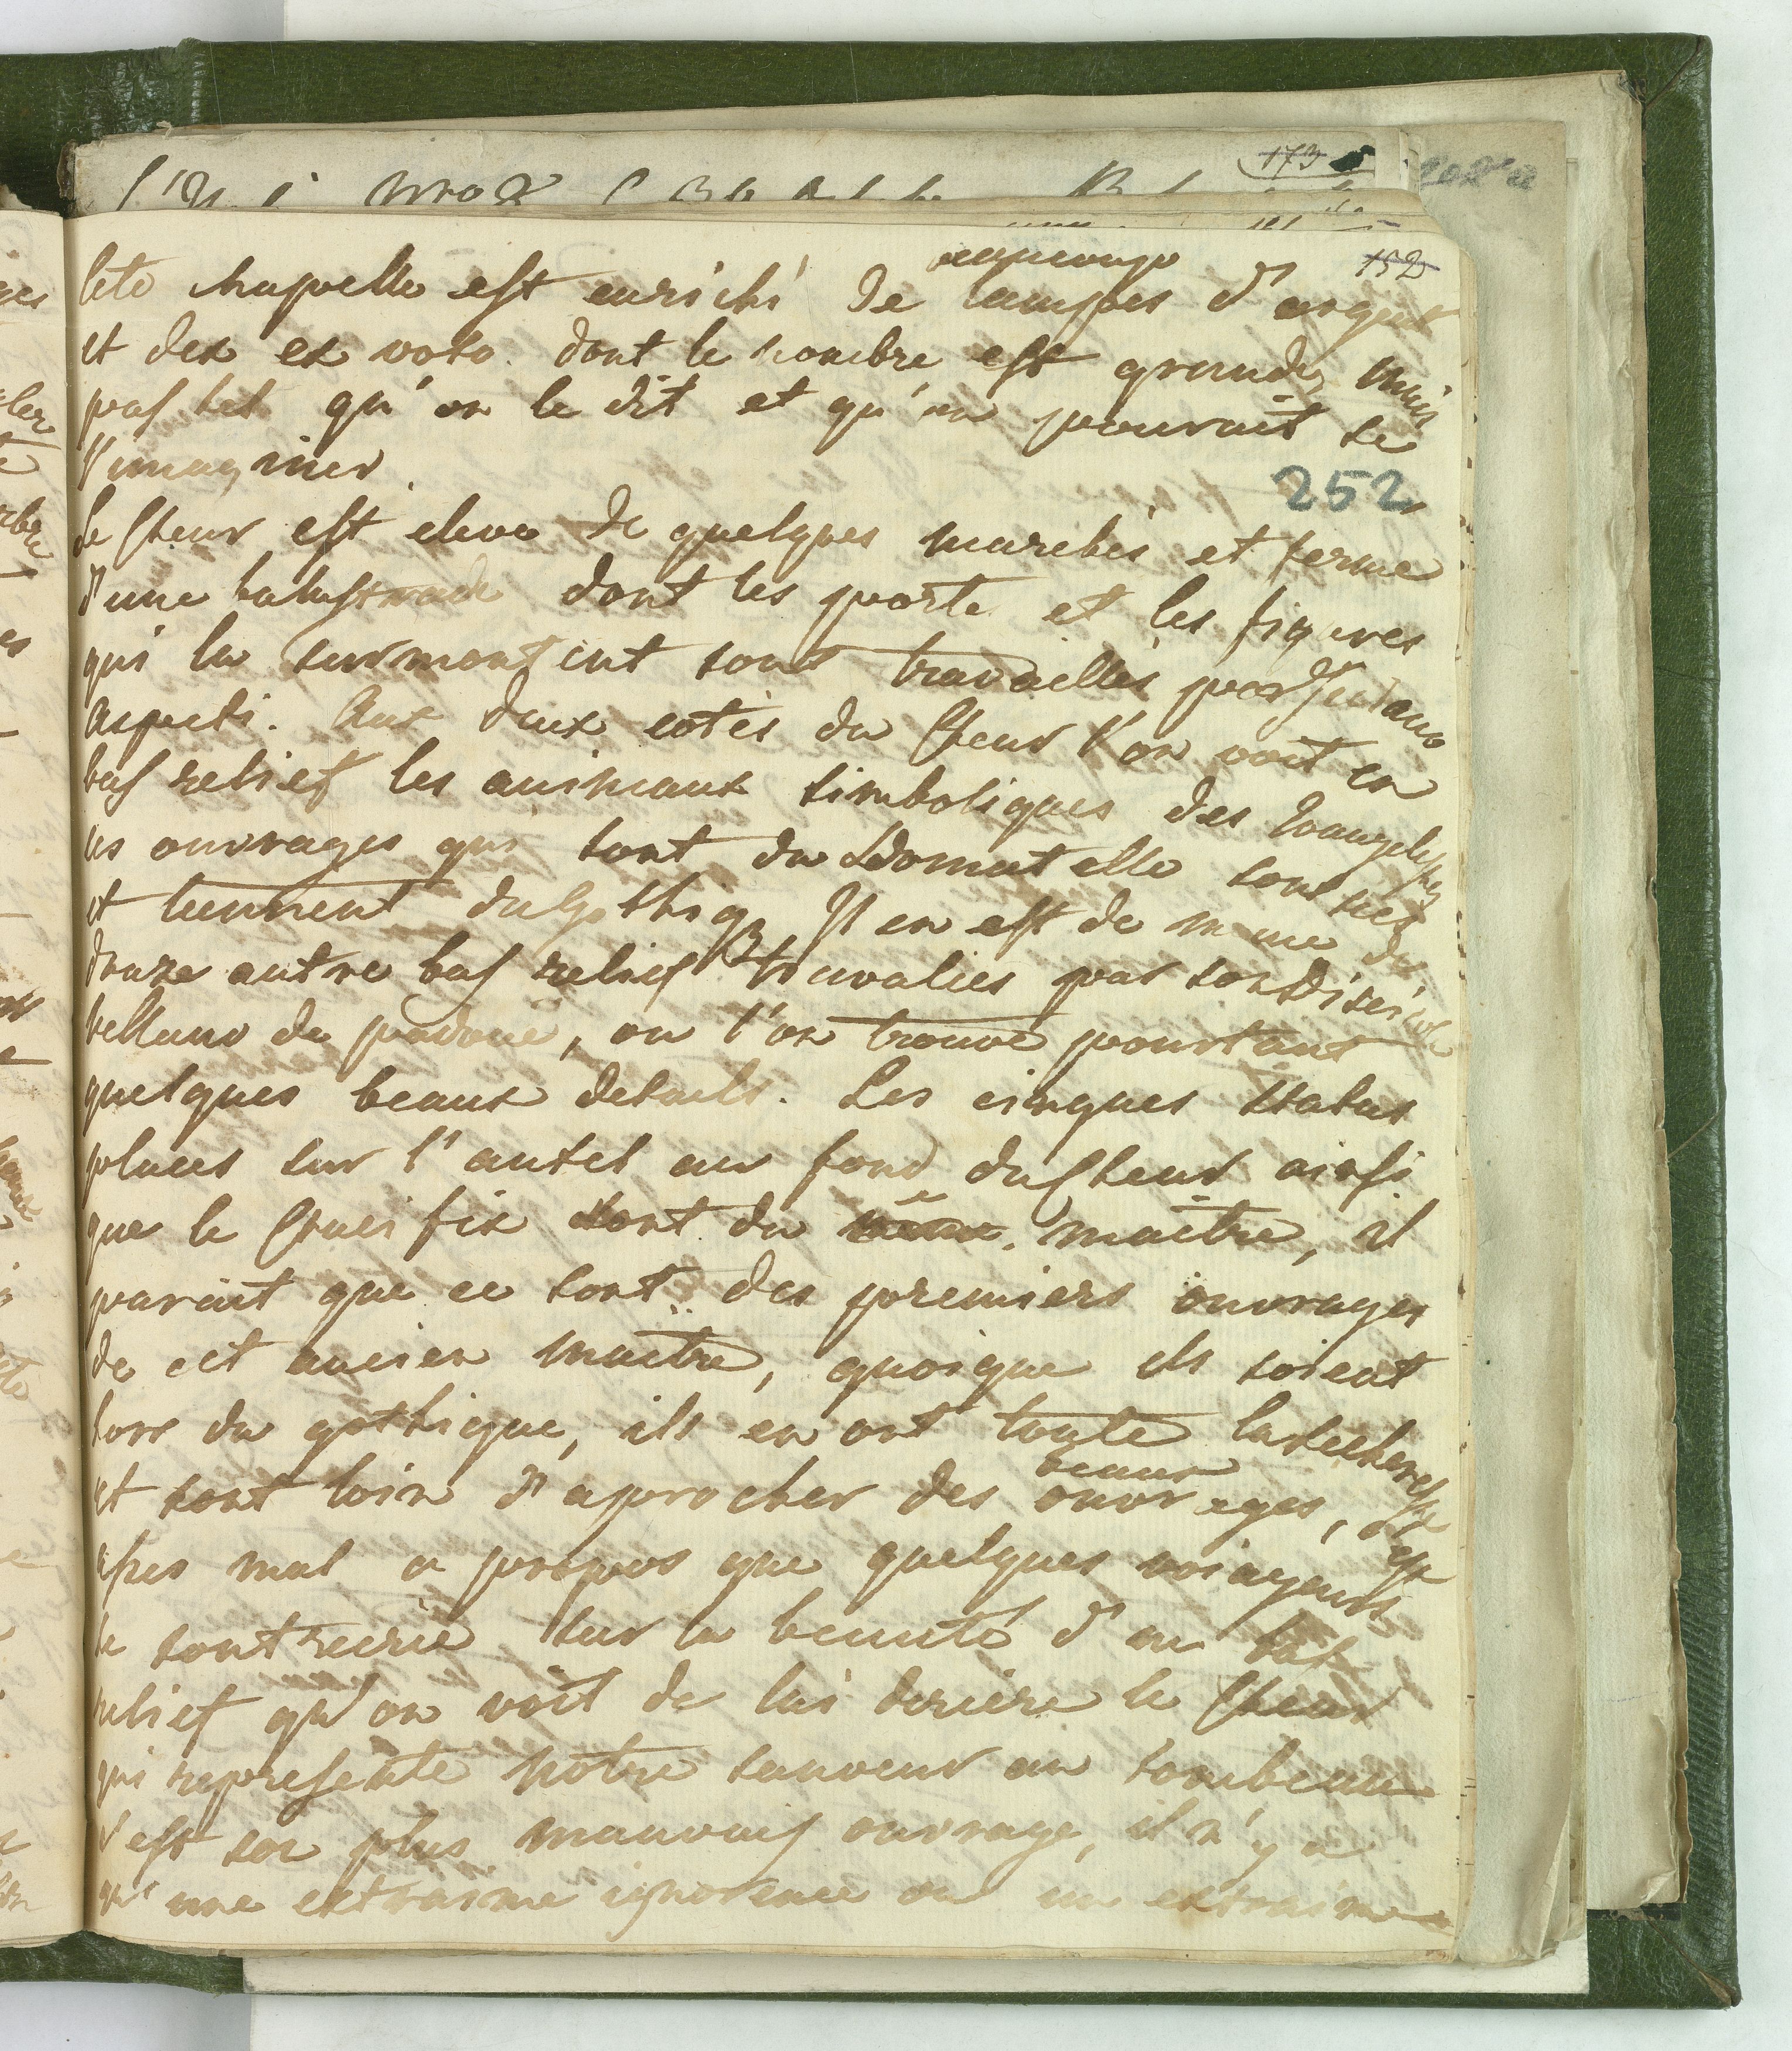 173
152
beaucoup
cete chapelle est enrichi de lampes d'argent
et des ex voto. dont le nombre est grand, mais
pas tel qu'on le dit et qu'on pouroit se
l'imaginer.
252
Le Cheur est eleve de quelques marches et ferme
d'une balustrade dont les porte et les figures
qui la surmontent sont travailles par
Aspecti. Aux deux cotes du Cheur l'on voit en
bas relief les animaux simboliques des Evangelistes
les ouvrages qui sont du Donnatelle sont
et tiennent du gothiq. Il en est de meme des
douze autre bas relief travalies par son
vellano de padoue, ou l'on trouve pourtant
quelques beaux details. Les cinques statues
placees sur l'autel au fond du Cheur ainsi
que le Crucifix sont du maitre, il
paroit que ce sont des premiers ouvrages
de cet ancien maitre, quoique ils soient
hors du gothique, ils en ont toute la secheresse
beaux
et sont loin d'aprocher des ouvrages, c'est
asses mal a propos que quelques voiageurs
se sont recrie sur la beaute d'un bas
relief qu'on voit de lui deriere le Cheur
qui represente notre sauveur au tombeau
c'est son plus mauvais ouvrage, il n'y a
qu'une extraime ignorence ou un extraime